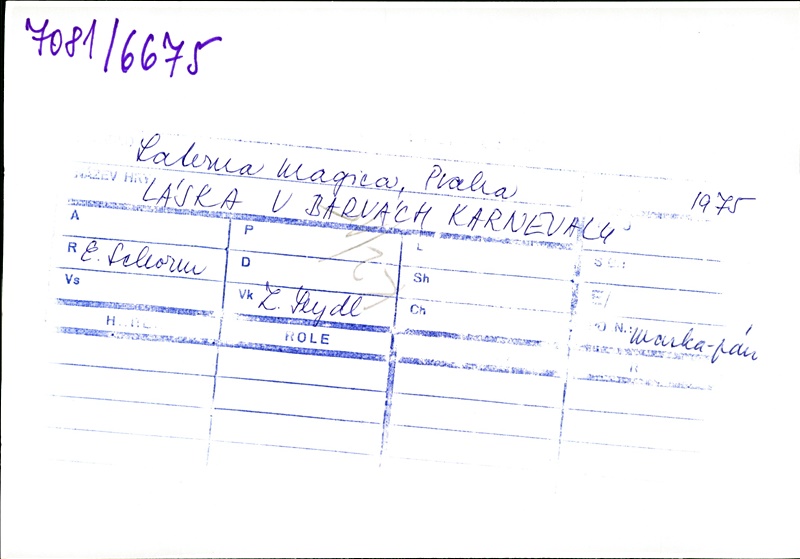 7081/6675
Laterna magica, Praha
NÁZEV HRY
LÁSKA V BARVÁCH KARNEVALU 1975
A P L
R E. Schorm D Sh
Vs Vk Z. Seydl Ch
N.: maska-pán
ROLE